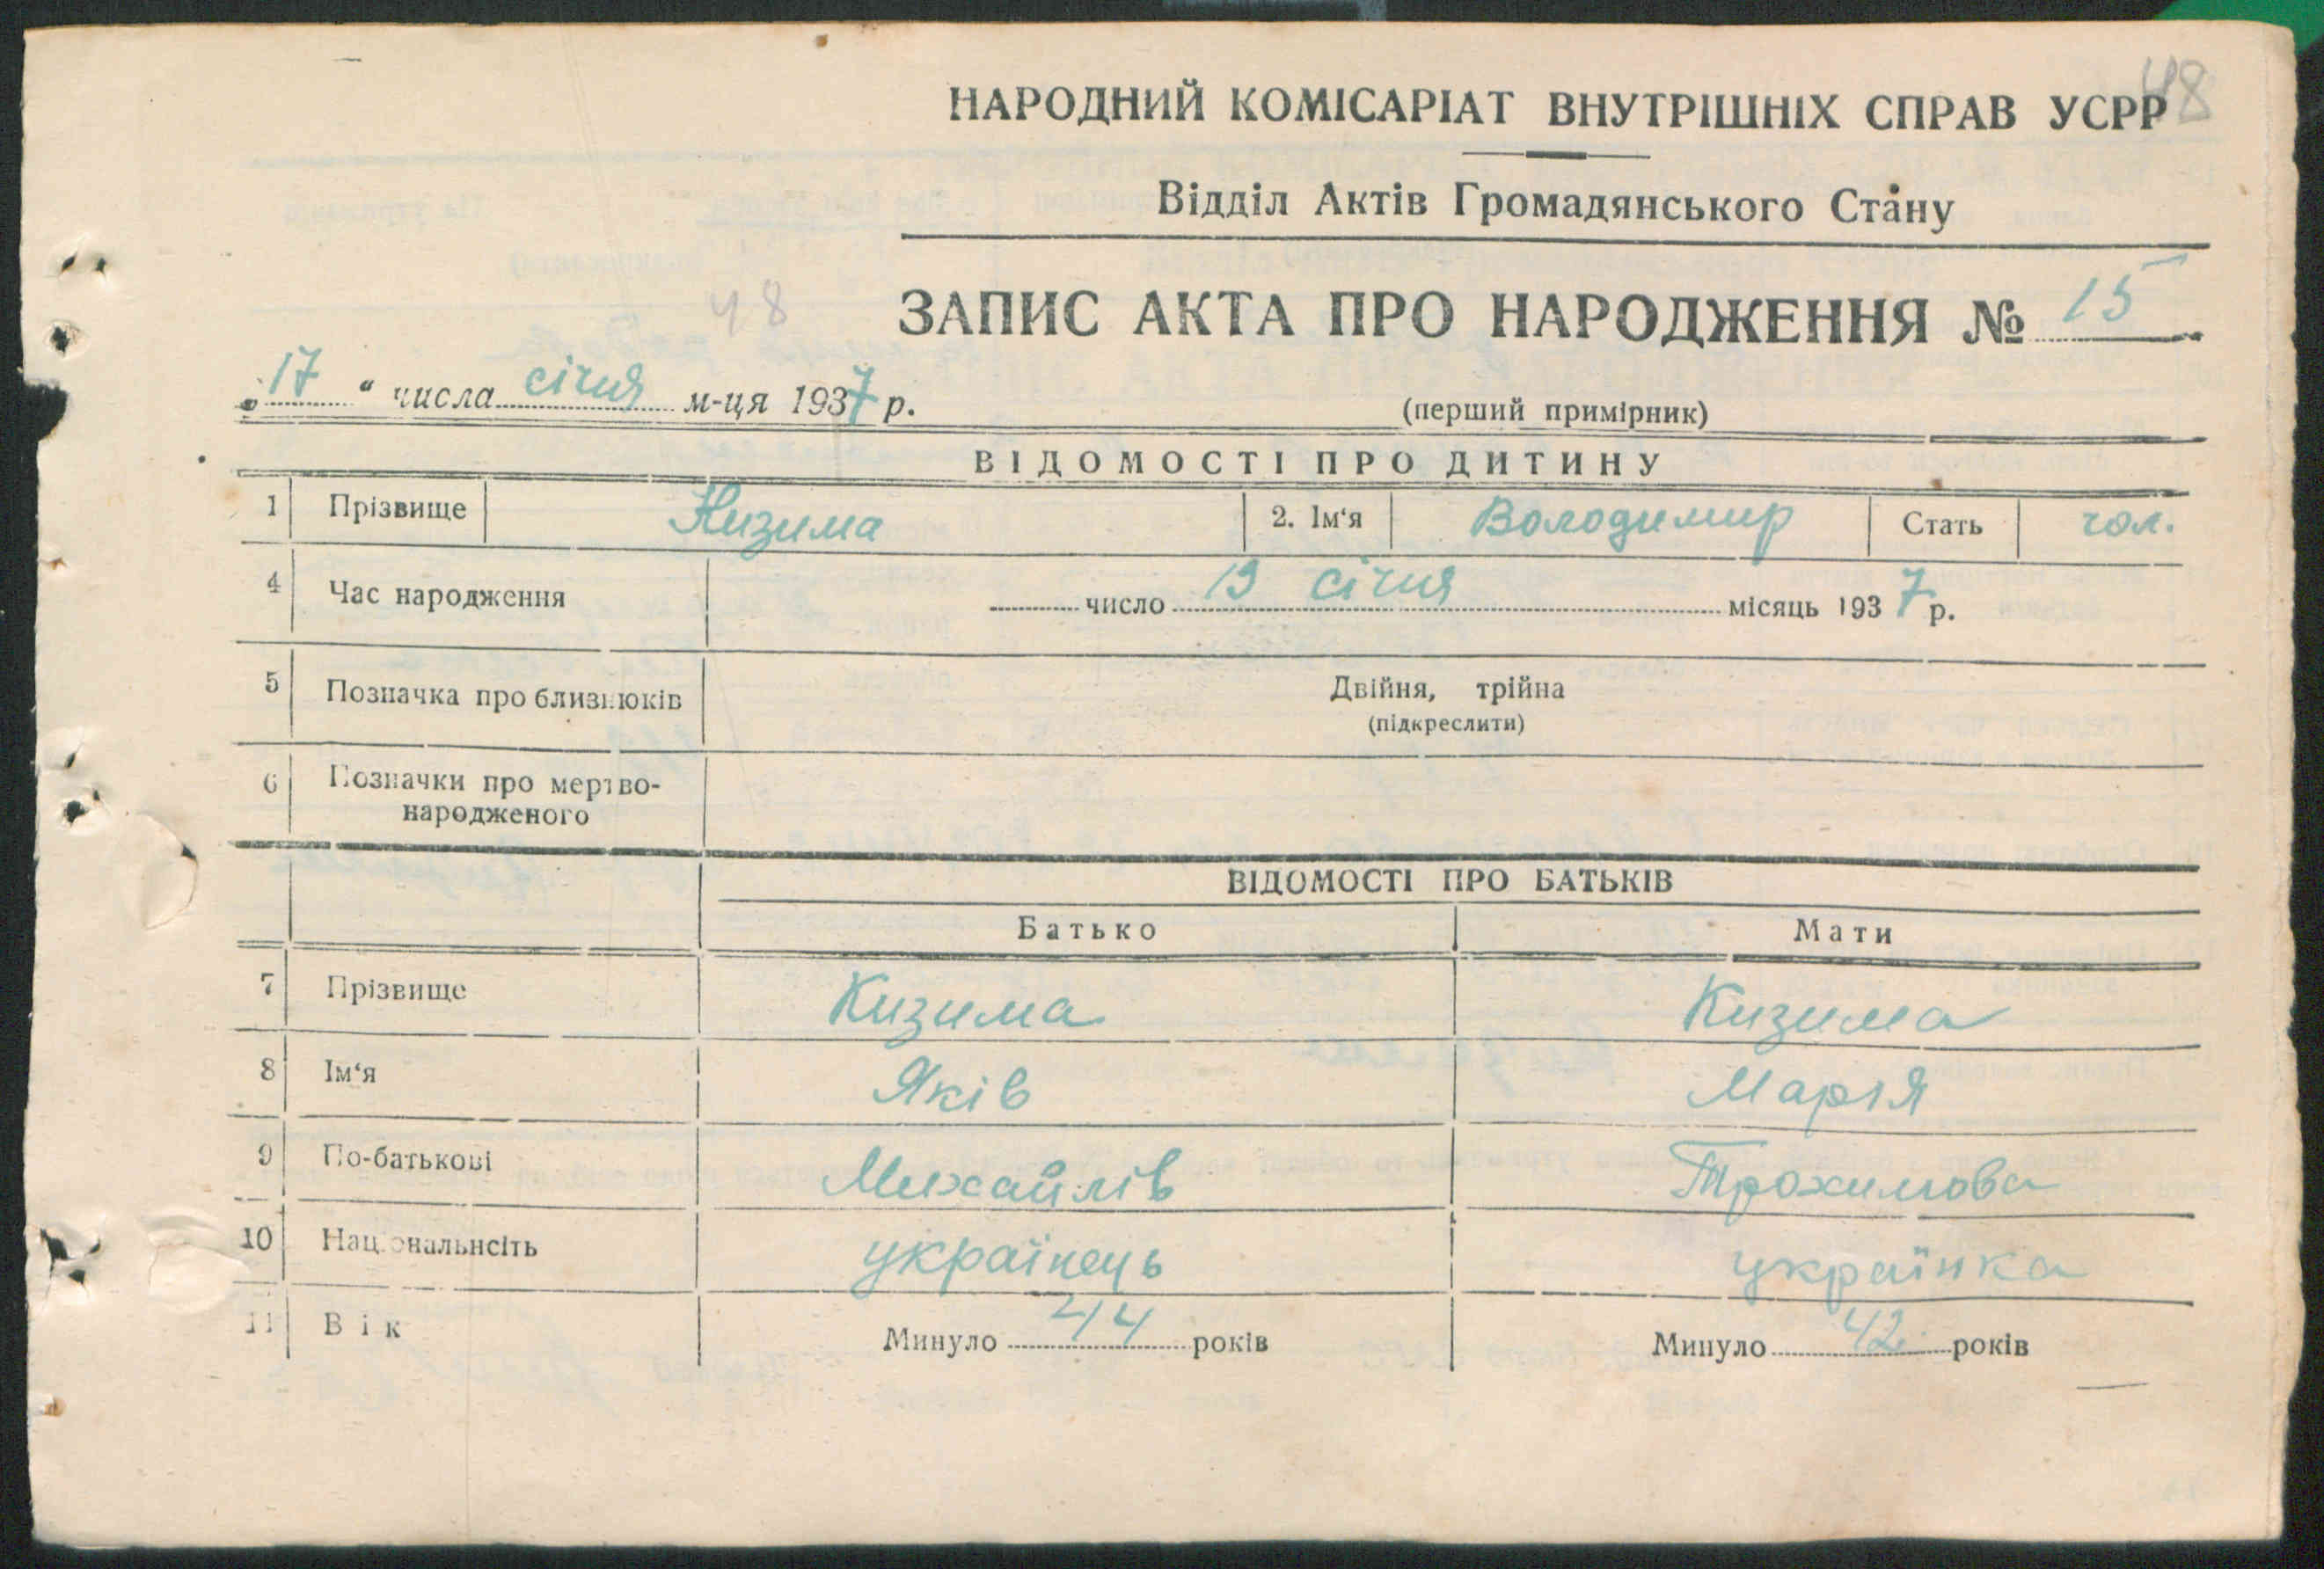 48
НАРОДНИЙ КОМІСАРІАТ ВНУТРІШНІХ СПРАВ УСРР
Відділ Актів Громадянського Стану
48
ЗАПИС АКТА ПРО НАРОДЖЕННЯ № 15
„17“ числа січня м-ця 1937 р.
(перший примірник)
ВІДОМОСТІ ПРО ДИТИНУ
1 Прізвище Кизима 2. Ім‘я Володимир Стать чол.
4 Час народження число 13 січня місяць 1937 р.
5 Позначка про близнюків Двійня, трійна
(підкреслити)
6 Позначки про мертво-
народженого
ВІДОМОСТІ ПРО БАТЬКІВ
Батько Мати
7 Прізвище Кизима Кизима
8 Ім‘я Яків Марія
9 По-батькові Михайлів Трохимова
10 Національнсіть українець українка
11 Вік Минуло 44 років Минуло 42 років